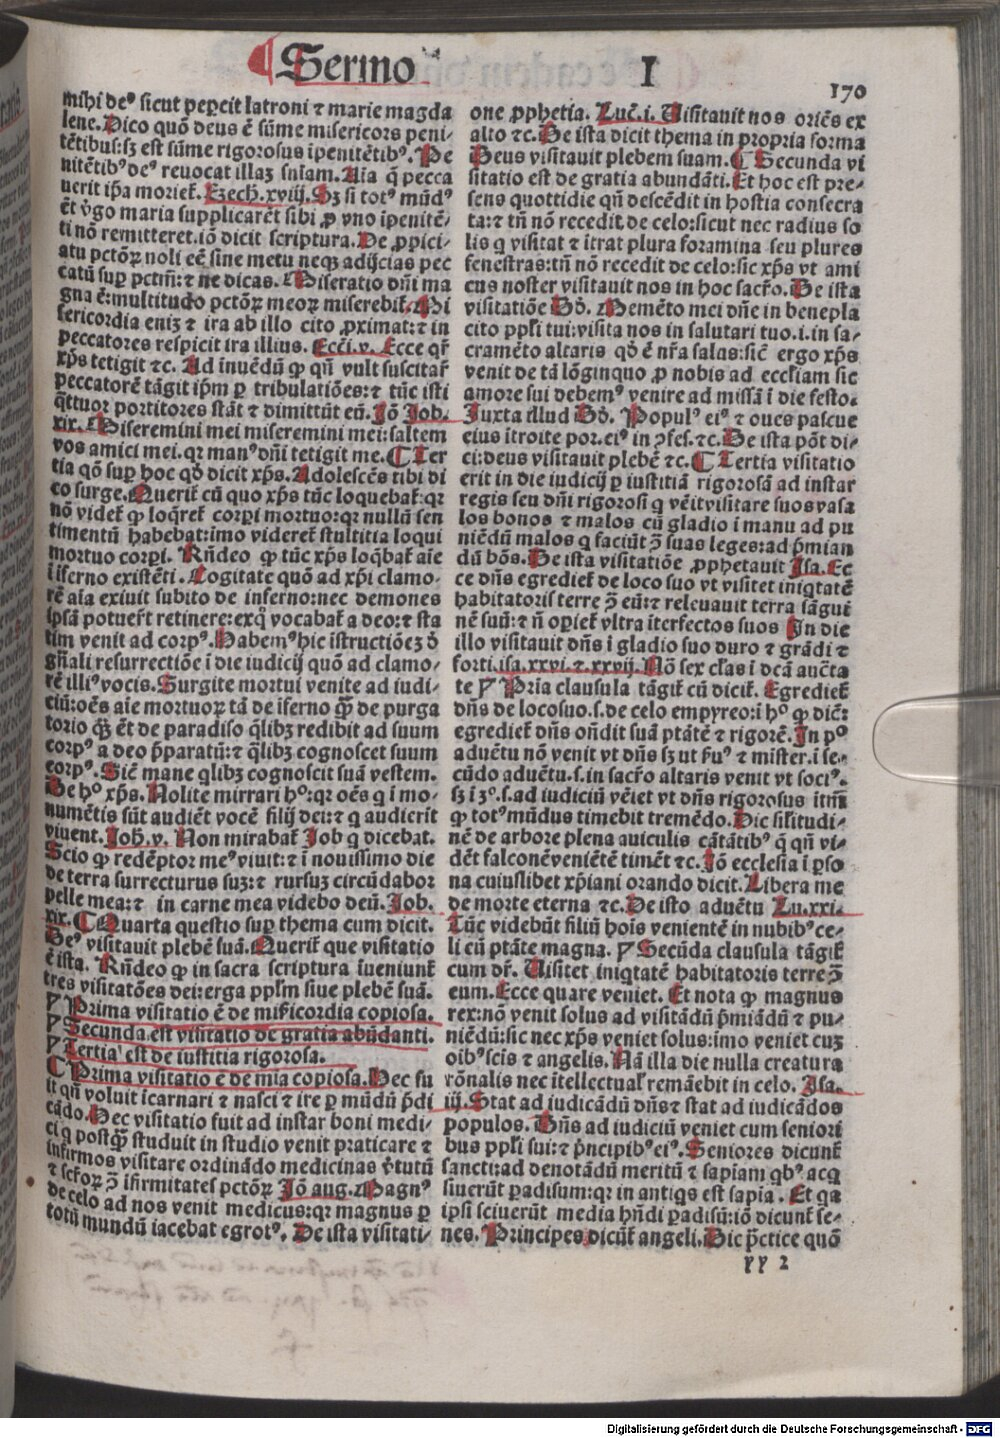 Sermo I
170
mihi deꝰ sicut pepercit latroni ⁊ marie magda
lene. Dico quō deus ē sūme misericors peni⸗
tētibus:sꝫ est sūme rigorosus īpenitētibꝰ. Pe
nitētibꝰ deꝰ reuocat illaꝫ sniam. Aīa q̄ pecca
uerit ip̄a morieť. Ezech. xviij. Sꝫ si totꝰ mūdꝰ
ēt v̓go maria supplicarēt sibi ꝓ vno īpenitē⸗
ti nō remitteret.iō dicit scriptura. De ꝓpici⸗
atu pctōꝝ noli eē sine metu neqꝫ adijcias pec
catū suꝑ pctm̄:⁊ ne dicas. Miseratio dn̄i ma
gna ē:multitudo pctōꝝ meoꝝ miserebiť. Mi
sericordia eniꝫ ⁊ ira ab illo cito ꝓximat:⁊ in
peccatores respicit ira illius. Ecci. v. Ecce qr̄
xp̄s tetigit ⁊c. Ad inuēdū ꝙ qn̄ vult suscitař
peccatorē tāgit ip̄m ꝑ tribulatiōes:⁊ tūc isti
q̄ttuor portitores stāt ⁊ dimittūt eū. Iō Iob.
xix. Miseremini mei miseremini mei:saltem
vos amici mei.qr manꝰ dn̄i tetigit me. ¶ Ter
tia qō suꝑ hoc qđ dicit xp̄s. Adolescēs tibi di
co surge. Queriť cū quo xp̄s tūc loquebať:qr
nō videť ꝙ loq̄reť corpi mortuo:qr nullū sen
timentū habebat:imo videreť stultitia loqui
mortuo corpi. Rn̄deo ꝙ tūc xp̄s loq̄bať aīe
ī īferno existēti. Cogitate quō ad xp̄i clamo⸗
rē aīa exiuit subito de inferno:nec demones
ip̄sā potuerť retinere:exq̄ vocabať a deo:⁊ sta
tim venit ad corpꝰ. Habemꝰ hic īstructiōeꝫ đ
gn̄ali resurrectiōe ī die iudicij quō ad clamo⸗
rē illiꝰ vocis. Surgite mortui venite ad iudi⸗
ciū:oēs aīe mortuoꝝ tā de īferno q̄ꝫ de purga
torio q̄ꝫ ēt de paradiso q̄libꝫ redibit ad suum
corpꝰ a deo p̄paratū:⁊ q̄libꝫ cognoscet suum
corpꝰ. Sic̄ mane qlibꝫ cognoscit suā vestem.
De hº xp̄s. Nolite mirrari hº:qr oēs q ī mo⸗
numētis sūt audiēt vocē filij dei:⁊ q audierit
viuent. Joh. v. Non mirabať Iob q dicebat.
Scio ꝙ redēptor meꝰ viuit:⁊ ī nouissimo die
de terra surrecturus suꝫ:⁊ rursuꝫ circūdabor
pelle mea:⁊ in carne mea videbo deū. Iob.
xix. ¶ Quarta questio suꝑ thema cum dicit.
Deꝰ visitauit plebē suā. Queriť que visitatio
ē ista. Rn̄deo ꝙ in sacra scriptura īueniunť
tres visitatōes dei:erga pplm siue plebē suā.
Prima visitatio ē de mis̄icordia copiosa.
Secunda est visitatio de gratia abūdanti.
Tertia est de iustitia rigorosa.
¶ Prima visitatio ē de mīa copiosa. Hec fu
it qn̄ voluit īcarnari ⁊ nasci ⁊ ire ꝑ mūdū p̄di
cādo. Hec visitatio fuit ad instar boni medi⸗
ci q postq̄ꝫ studuit in studio venit praticare ⁊
infirmos visitare ordinādo medicinas v̓tutū
ꝯ īfirmitates pctōꝝ Iō aug. Magnꝰ
de celo ad nos venit medicus:qr magnus ꝑ
totū mundū iacebat egrotꝰ. De ista visitati⸗
one ꝓphetia. Luc̄. i. Visitauit nos oriēs ex
alto ⁊c. De ista dicit thema in propria forma
Deus visitauit plebem suam. ¶ Secunda vi
sitatio est de gratia abundāti. Et hoc est pre⸗
sens quottidie qn̄ descēdit in hostia consecra
ta:⁊ tn̄ nō recedit de celo:sicut nec radius so
lis q visitat ⁊ ītrat plura foramina seu plures
fenestras:tn̄ nō recedit de celo:sic xp̄s vt ami
cus noster visitauit nos in hoc sacr̄o. De ista
visitatiōe Dđ. Memēto mei dn̄e in benepla
cito pplī tui:visita nos in salutari tuo.i.in sa⸗
cramēto altaris qđ ē nr̄a salus:sic̄ ergo xp̄s
venit de tā lōginquo ꝓ nobis ad eccłiam sic
amore sui debemꝰ venire ad missā ī die festo.
Iuxta illud Dđ. Populꝰ eiꝰ ⁊ oues pascue
eius ītroite por.eiꝰ in ꝯfes.⁊c. De ista pōt di⸗
ci:deus visitauit plebē ⁊c. ¶ Tertia visitatio
erit in die iudicij ꝑ iustitiā rigorosā ad instar
regis seu dn̄i rigorosi q vēit visitare suos vasa
los bonos ⁊ malos cū gladio ī manu ad pu
niēdū malos q faciūt ꝯ suas leges:ad p̄mian
dū bōs. De ista visitatiōe ꝓphetauit Isa. Ec
ce dn̄s egredieť de loco suo vt visitet iniq̄tatē
habitatoris terre ꝯ eū:⁊ releuauit terra sāgui
nē suū:⁊ n̄ opieť vltra īterfectos suos In die
illo visitauit dn̄s ī gladio suo duro ⁊ grādi ⁊
forti.isa.xxvi.⁊ xxvij. Nō sex cłas ī dcā aucta
te Pria clausula tāgiť cū diciť. Egredieť
dn̄s de loco suo.s.de celo empyreo:ī hº ꝙ dic̄:
egredieť dn̄s ond̄it suā ptātē ⁊ rigorē. In pº
aduētu nō venit vt dn̄s sꝫ ut ſ̓uꝰ ⁊ mister.ī se⸗
cūdo aduētu.s.in sacr̄o altaris venit vt sociꝰ.
sꝫ ī 3º.s.ad iudiciū vēiet vt dn̄s rigorosus itm̄
ꝙ totꝰ mūdus timebit tremēdo. Dic silitudi⸗
nē de arbore plena auiculis cātātibꝰ q̄ qn̄ vi⸗
dēt falconē veniētē timēt ⁊c. Iō ecclesia ī ꝑso
na cuiuslibet xp̄iani orando dicit. Libera me
de morte eterna ⁊c. De isto aduētu Lu. xxi.
Tūc videbūt filiū hoīs venientē in nubibꝰ ce⸗
li cū ptāte magna. Secūda clausula tāgiť
cum dr̄. Visitet iniq̄tatē habitatoris terre ꝯ
eum. Ecce quare veniet. Et nota ꝙ magnus
rex:nō venit solus ad visitādū p̄miādū ⁊ pu⸗
niēdū:sic nec xp̄s veniet solus:imo veniet cuꝫ
oībꝰ scīs ⁊ angelis. Nā illa die nulla creatura
rōnalis nec ītellectualꝭ remāebit in celo. Isa.
iij. Stat ad iudicādū dn̄s ⁊ stat ad iudicādos
populos. Dn̄s ad iudiciū veniet cum seniori
bus pplī sui:⁊ p̄ncipibꝰ eiꝰ. Seniores dicunť
sancti:ad denotādū meritū ⁊ sapiam qbꝰ acq
siuerūt ꝑadisum:qr in antiqs est sapīa. Et qa
ipsi sciuerūt media hn̄di ꝑadisū:iō dicunť se⸗
nes. Principes dicūť angeli. Dic p̄ctice quō
yy 2
Digitalisierung gefördert durch die Deutsche Forschungsgemeinschaft - DFG